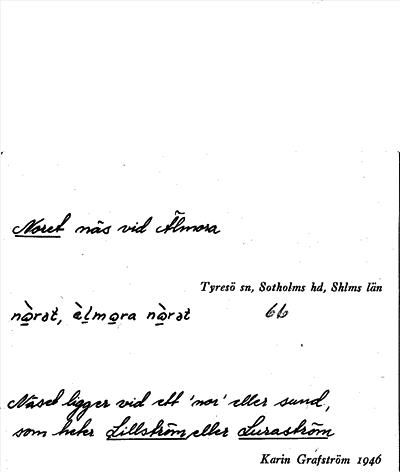 Noret näs vid Älmora
Tyresö sn, Sotholms hd, Shlms län
nò̱rət, ὲḻmo̱ra nò̱rət 66
Näset ligger vid ett 'nor' eller sund,
som heter Lillström eller Luraström
Karin Grafström 1946